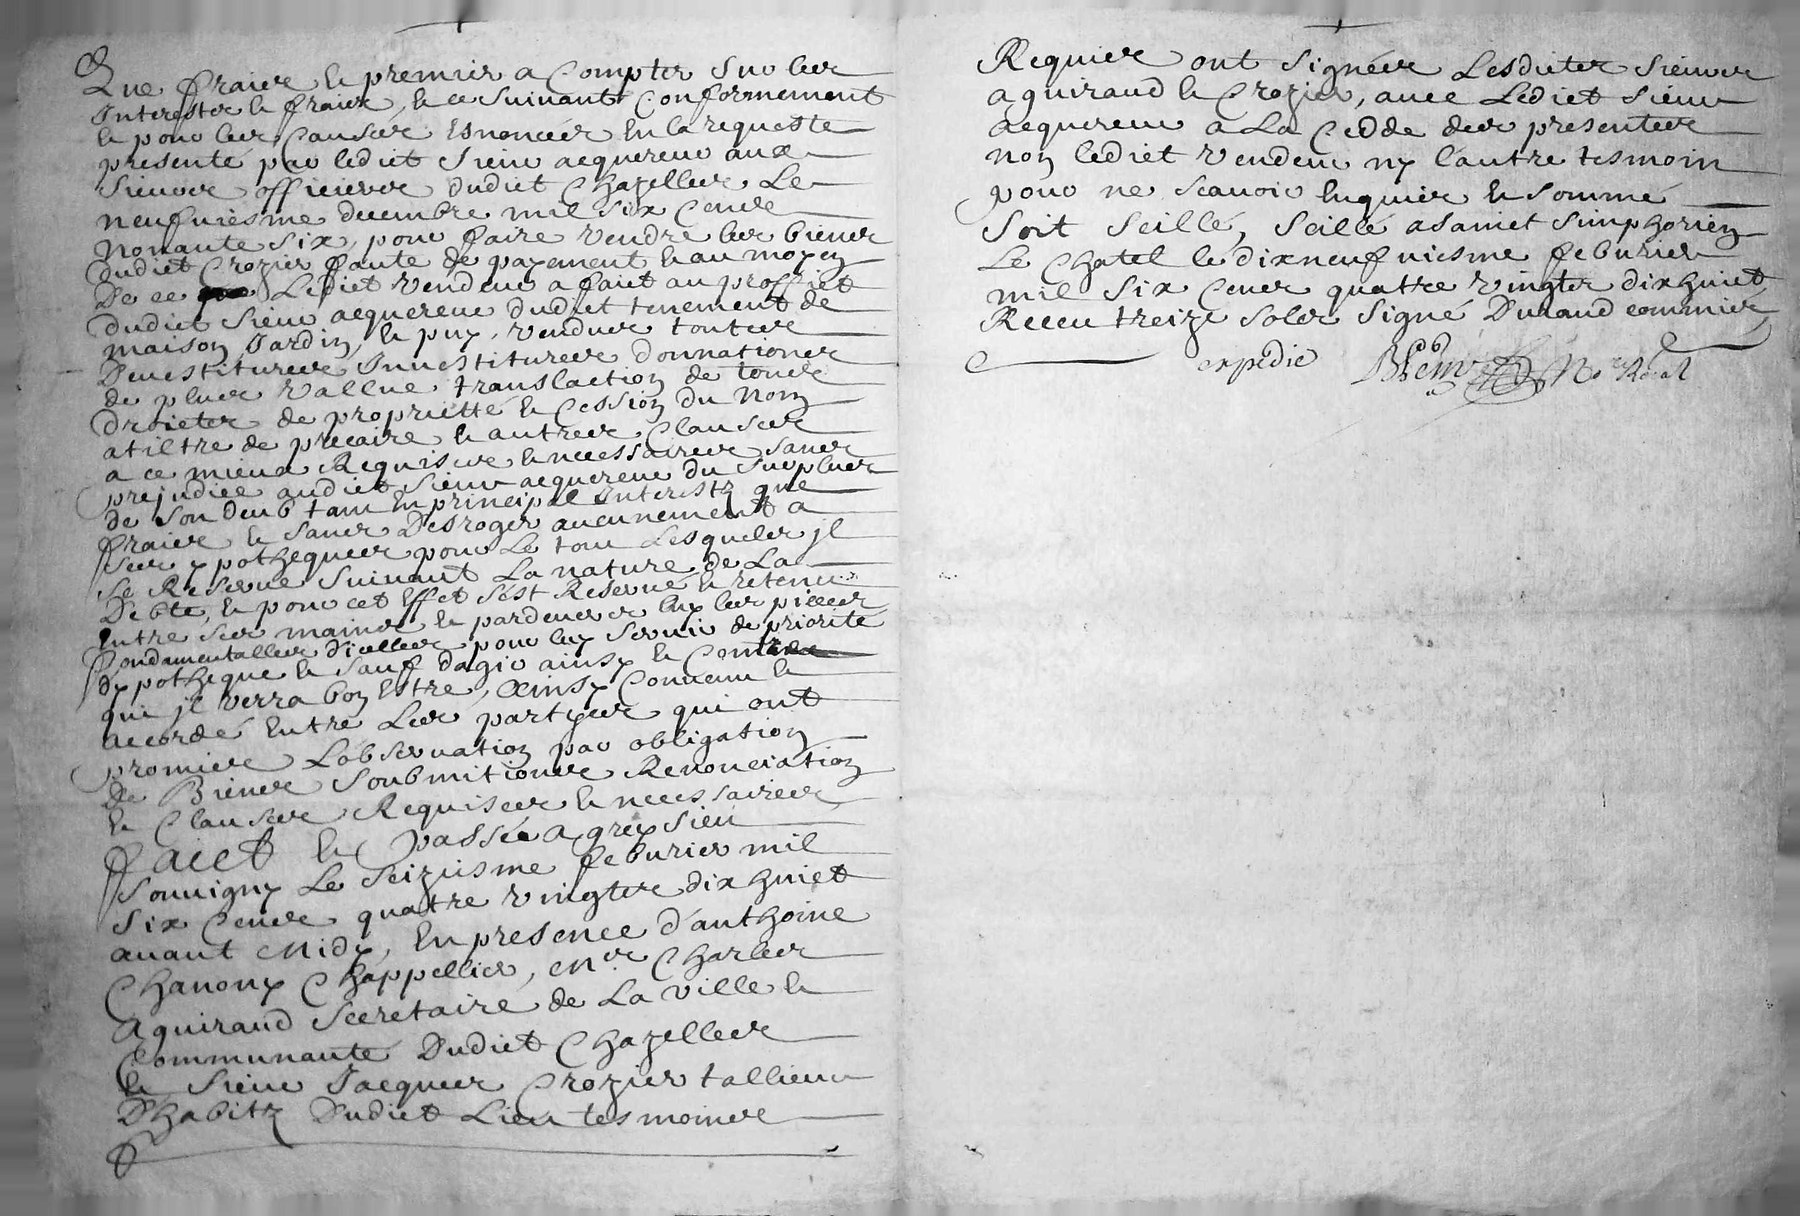 Que fraicts et premier a Compter sur les
Interestz et fraicts, et ce suivant Conformement
et pour les Causes Esnoncées En la requeste
presenté par ledict sieur acquereur aux
sieurs officiers dudict Chazelles Le
neufviesme decembre mil six Cents
nonante six, pour faire vendre les biens
dudict Crozier faute de payement et au moyen
De ce Ledict vendeur a faict au proffict
dudict sieur acquereur dudict tenement de
maison, Jardin, et puy, vendues toutes
Devestitures Investitures donnations
de plus vallue translaction de tous
droicts de proprietté et Cession du Nom
a tiltre de precaire et autres Clauses
a ce mieux Requises et necessaires sans
prejudice audict sieur acquereur du surplus
de son deub tant En principal Interestz que
fraicts et sans Desroger aucunement a
ses ypotheques pour Le tout Lesquels jl
se Reserve suivant La nature de La
Debte, et pour cet Effet s'est Reservé et retenu
Entre ses mains et pardevers luy les pieces
fondamentalles d'icelles pour luy servir de priorité
d'ypotheque et sauf d'agir ainsy et Contre
qui jl verra bon Estre, Ainsy Convenu et
accordé Entre Les partyes qui ont
promise L'observation par obligation
de Biens soubmitions Renonciation
et Clauses Requises et necessaires
Faict et passé a grezieu
souvigny Le seiziesme feburier mil
six Cents quatre vingts dixhuict
avant Midy, En presence d'anthoine
Chanony Chappellier, Mre Charles
Aguiraud secretaire de La ville et
Communauté Dudict Chazelles
et sieur Jacques Crozier tallieur
D'habitz Dudict Lieu tesmoins
Requis ont signées Lesdicts sieurs
aguiraud et Crozier, avec Ledict sieur
acquereur a La Cedde des presentes
non ledict vendeur ny l'autre tesmoin
pour ne scavoir Enquis et sommé
soit seillé, seillé a sainct simphorien
Le Chatel le dixneufviesme feburier
mil six Cens quatre vingts dixhuict
Receu treize sols signé Durand commis
expédié